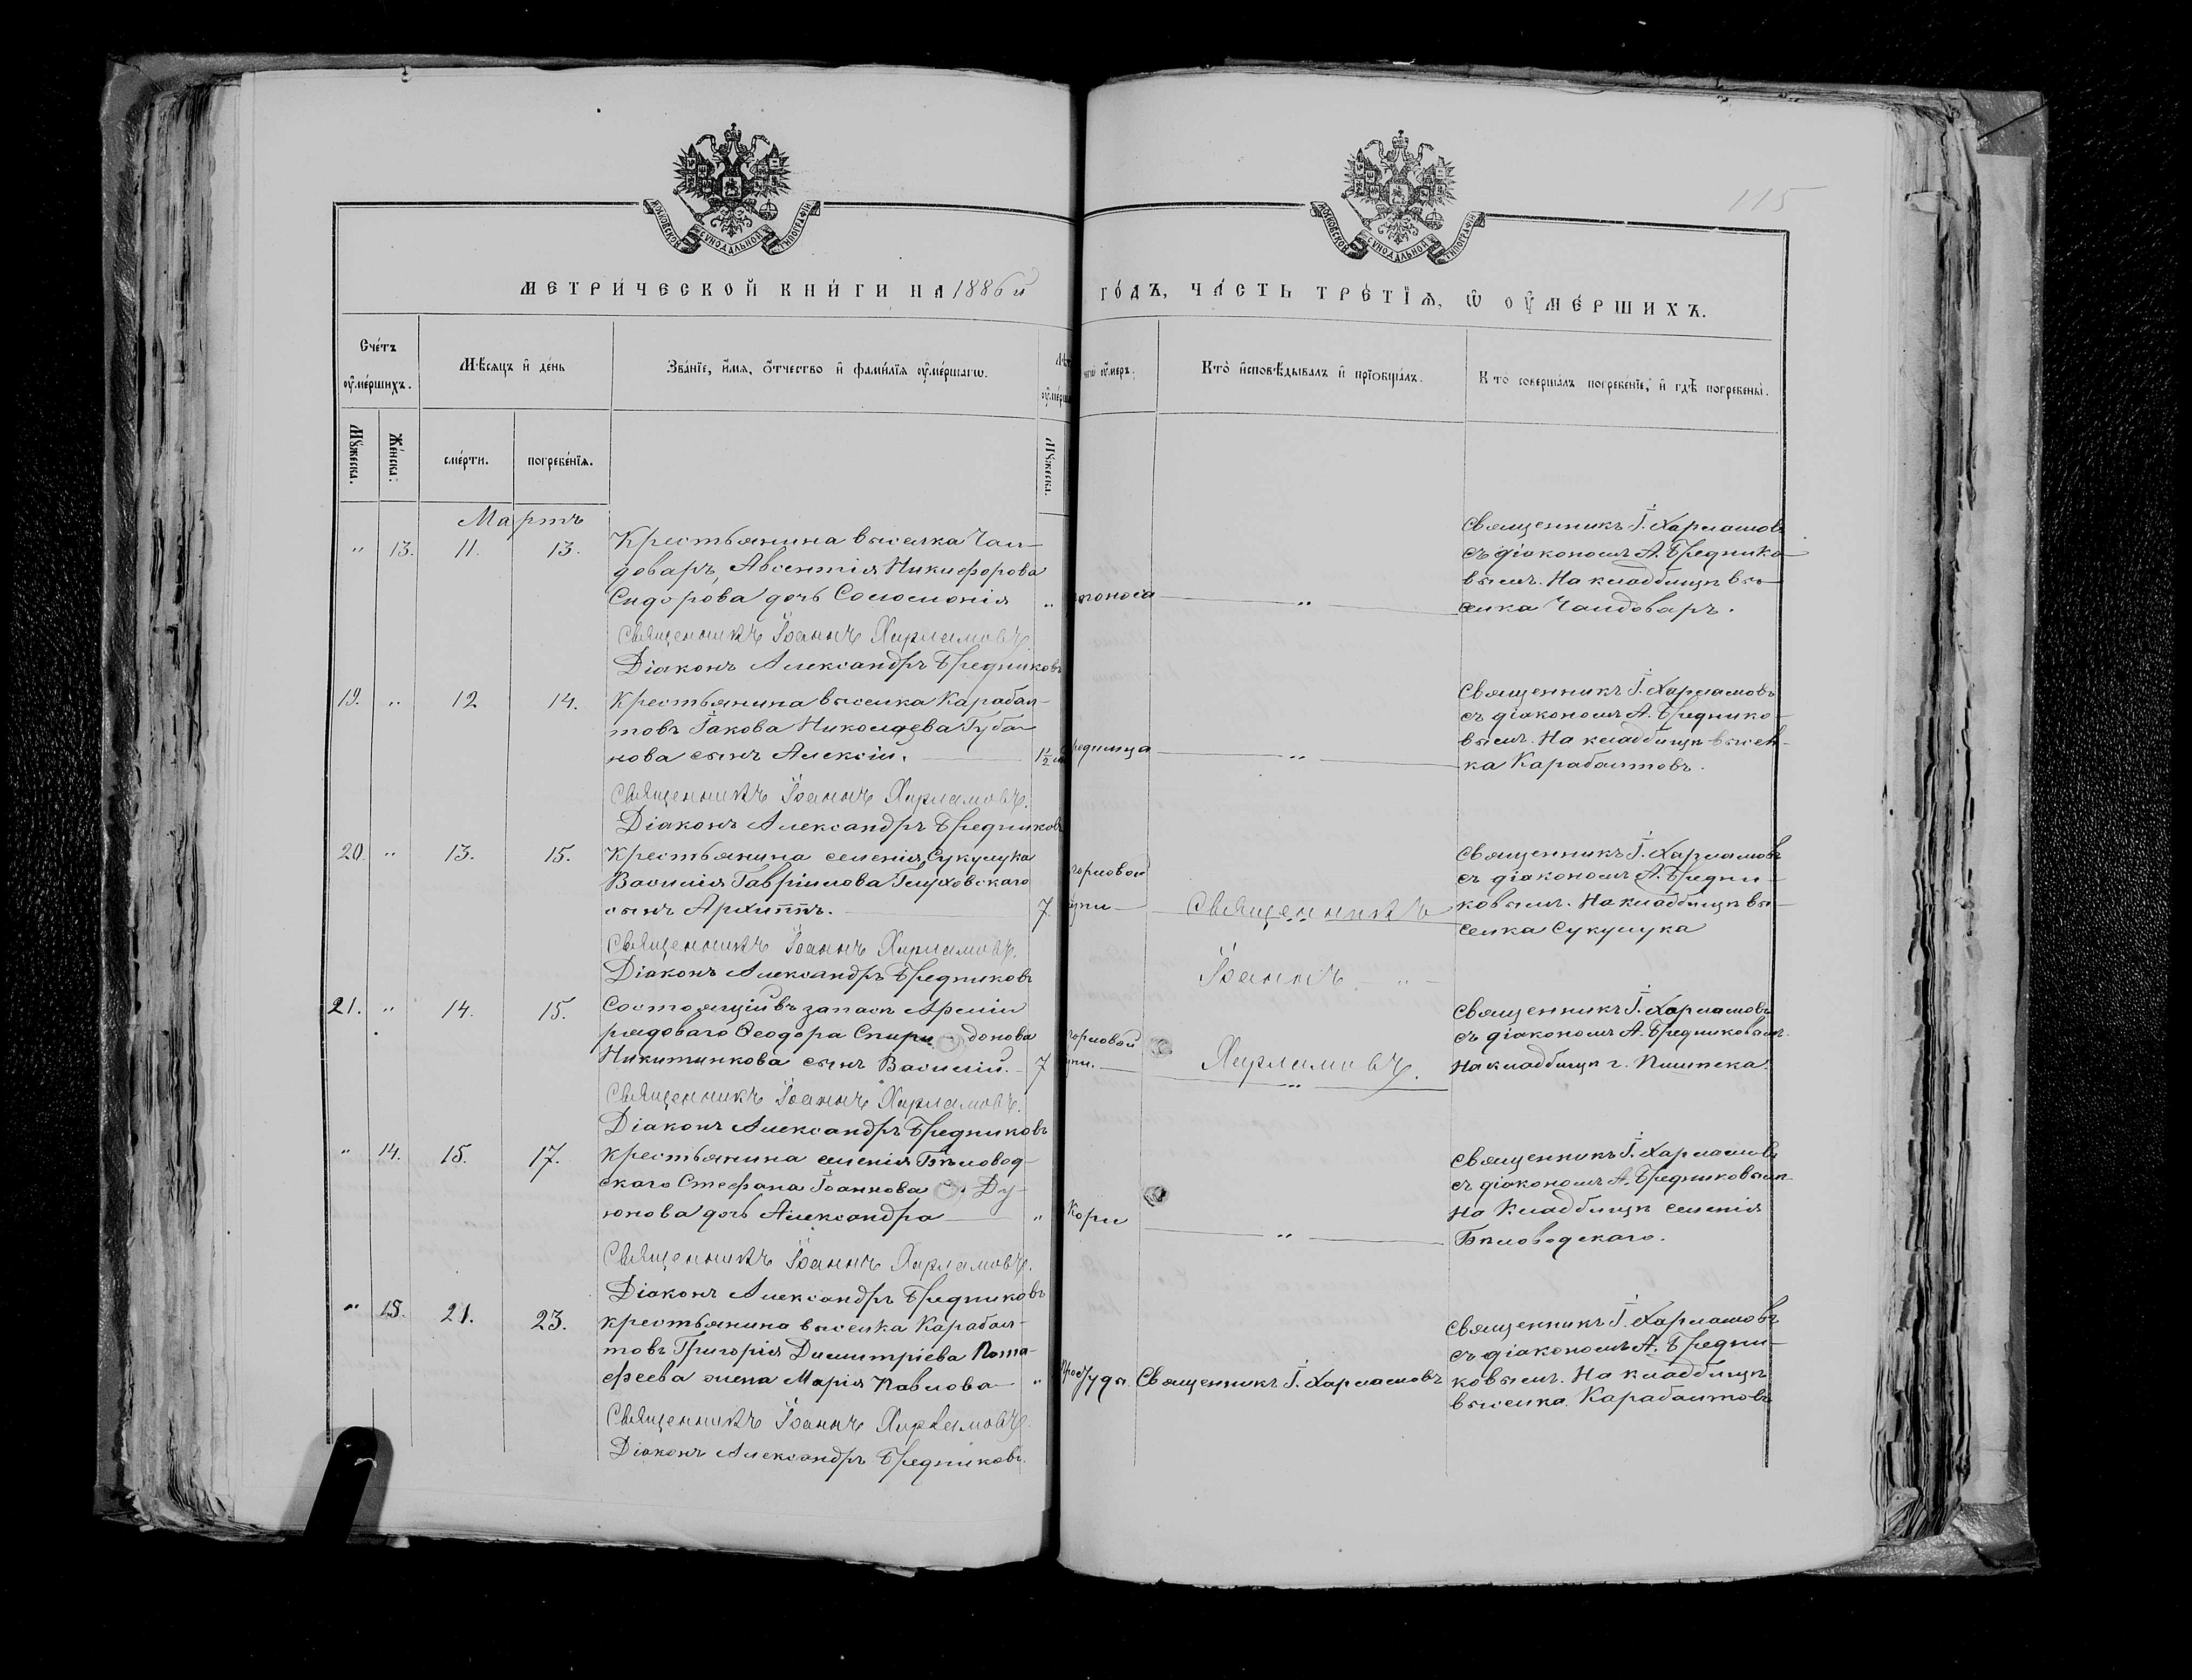 115
МОСКОВСКОЙ СѴНОДАЛЬНОЙ ТИПОГРАФІИ
МОСКОВСКОЙ СѴНОДАЛЬНОЙ ТИПОГРАФІИ
МЕТРИ́ЧЕСКОЙ КНИ́ГИ НА 1886й
ГО́ДЪ, ЧА́СТЬ ТРЕ́ТІѦ, Ѡ ОУМЕ́РШИХЪ.
Сче́тъ оуме́ршихъ.
Мѣсяцъ и де́нь
Зва́нїе, и́мя, о́тчество и фами́лїя оуме́ршагѡ.
Кто̀ исповѣ́дывалъ и прїобща́лъ.
Кто̀ соверша́лъ погребе́нїе, и гдѣ̀ погребены̀.
Мꙋжеска.
Же́нска.
сме́рти.
погребе́нїя.
Мꙋжеска.
Мартъ
" 13. 11. 13. Крестьянина выселка Чал-
доваръ, Авсентія Никифорова
Сидорова дочь Соломонія "
Священникъ Іоаннъ Харламовъ.
Діаконъ Александръ Бредниковъ
Священникъ І. Харламовъ
съ діакономъ А. Бреднико-
вымъ. На кладбищѣ вы-
селка Чалдоваръ.
19. " 12 14. Крестьянина выселка Карабал-
товъ Іакова Николаева Губа-
нова сынъ Алексій. 1½
Священникъ Іоаннъ Харламовъ.
Діаконъ Александръ Бредниковъ
Священникъ І. Харламовъ
съ діакономъ А. Бреднико-
вымъ. На кладбищѣ высел-
ка Карабалтовъ.
20. " 13. 15. Крестьянина селенія Сукулука
Василія Гавріилова Глуховскаго
сынъ Архиппъ. 7
Священникъ Іоаннъ Харламовъ.
Діаконъ Александръ Бредниковъ
Священникъ
Іоаннъ
Харламовъ.
Священникъ І. Харламовъ
съ діакономъ А. Бредни-
ковымъ. На кладбищѣ вы-
селка Сукулука
21. " 14. 15. Состоящій въ запасѣ Арміи
рядоваго Ѳеодора Спири-донова
Никитинкова сынъ Василій. 7
Священникъ Іоаннъ Харламовъ.
Діаконъ Александръ Бредниковъ
Священникъ І. Харламовъ
съ діакономъ А. Бредниковымъ.
На кладбищѣ г. Пишпека.
" 14. 15. 17. Крестьянина селенія Бѣловод-
скаго Стефана Іоаннова Ду-
юнова дочь Александра " Кори
Священникъ Іоаннъ Харламовъ.
Діаконъ Александръ Бредниковъ
Священникъ І. Харламовъ
съ діакономъ А. Бредниковымъ
На Кладбищѣ селенія
Бѣловодскаго.
" 15. 21. 23. крестьянина выселка Карабал-
товъ Григорія Димитріева Пота-
феева жена Марія Павлова " Священникъ І. Харламовъ
Священникъ Іоаннъ Харламовъ.
Діаконъ Александръ Бредниковъ.
Священникъ І. Харламовъ
съ діакономъ А. Бредни-
ковымъ. На кладбищѣ
выселка Карабалтовъ